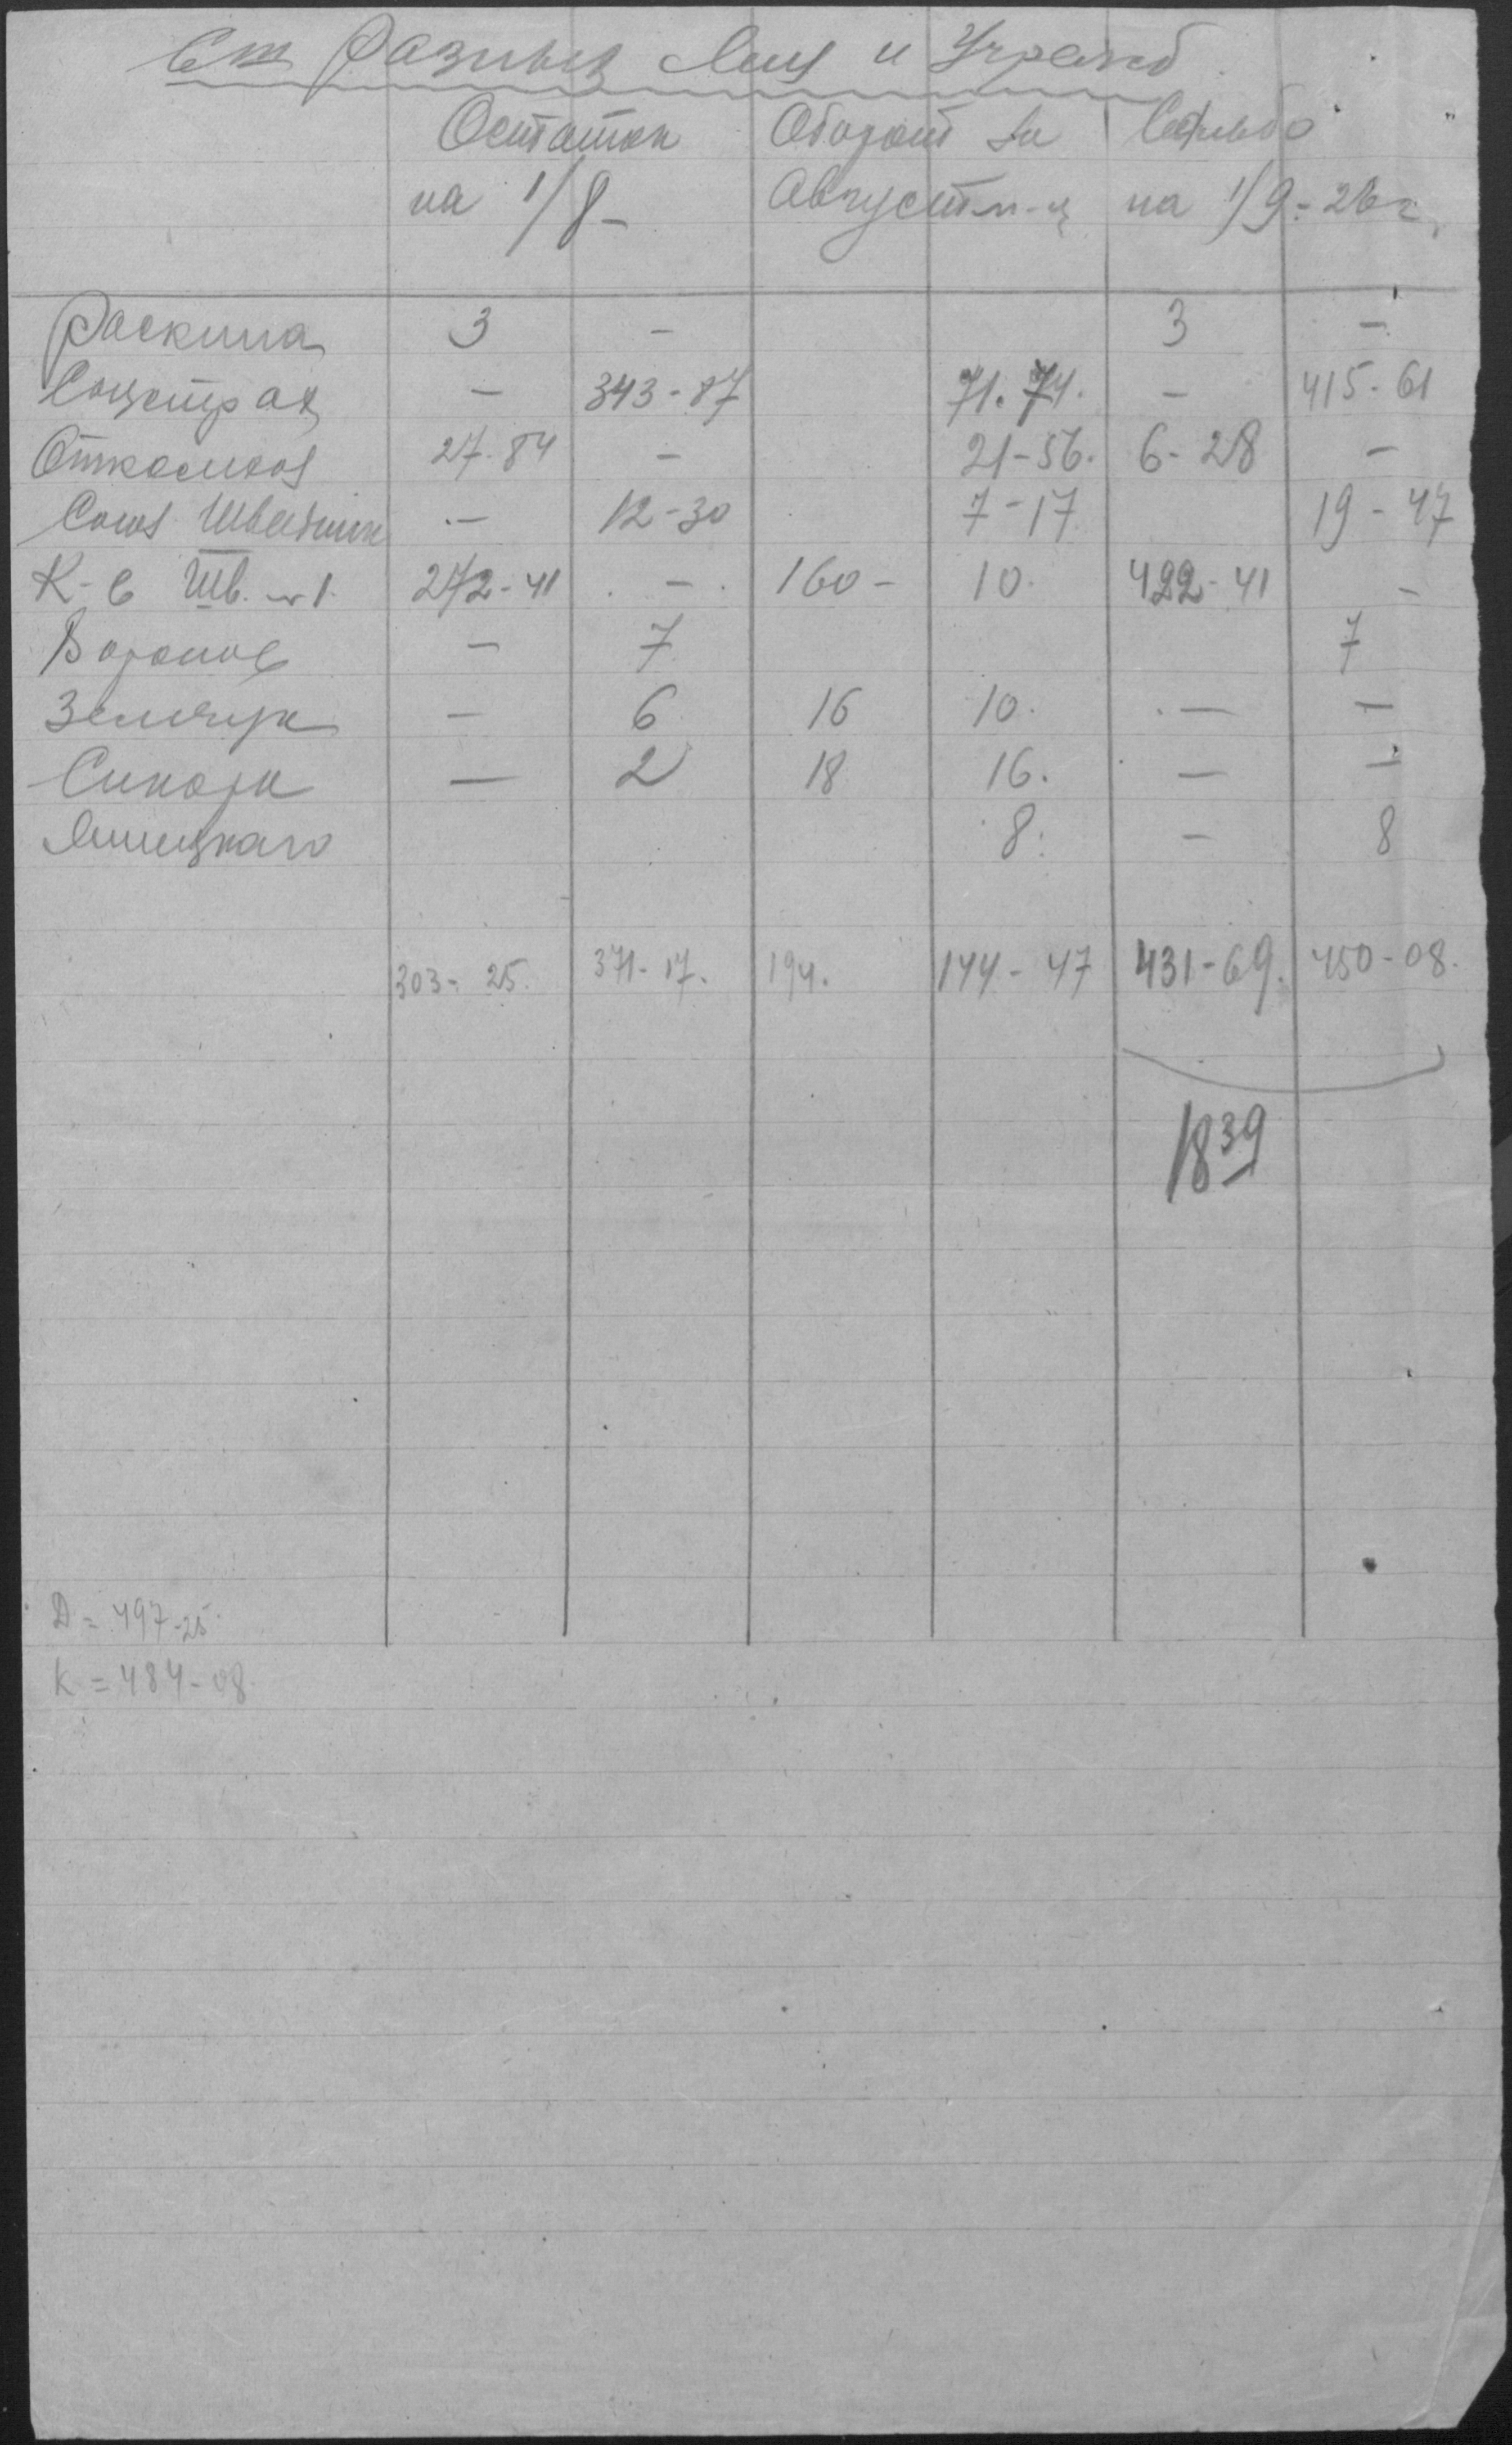 Сч Разных Лиц и Учрежд
Остаток Оборот за Сальдо
на 1/8- Август м-ц на 1/9-26 г.
Раскина 3 - 3 -
Соцстрах - 343-87 71.74. - 415-61
27.84 - 21-56. 6-28 -
Союз Швейник - 12-30 7-17 19-47
К-в Шв. №1. 272-41 - 160- 10. 422-41 -
Воронов - 7 7
Земчук - 6 16 10. - -
- 2 18 16. - -
8. - 8
303-25. 371-17. 194. 144-47 431-69. 450-08.
18 39
Д = 497-25.
К = 484-08.